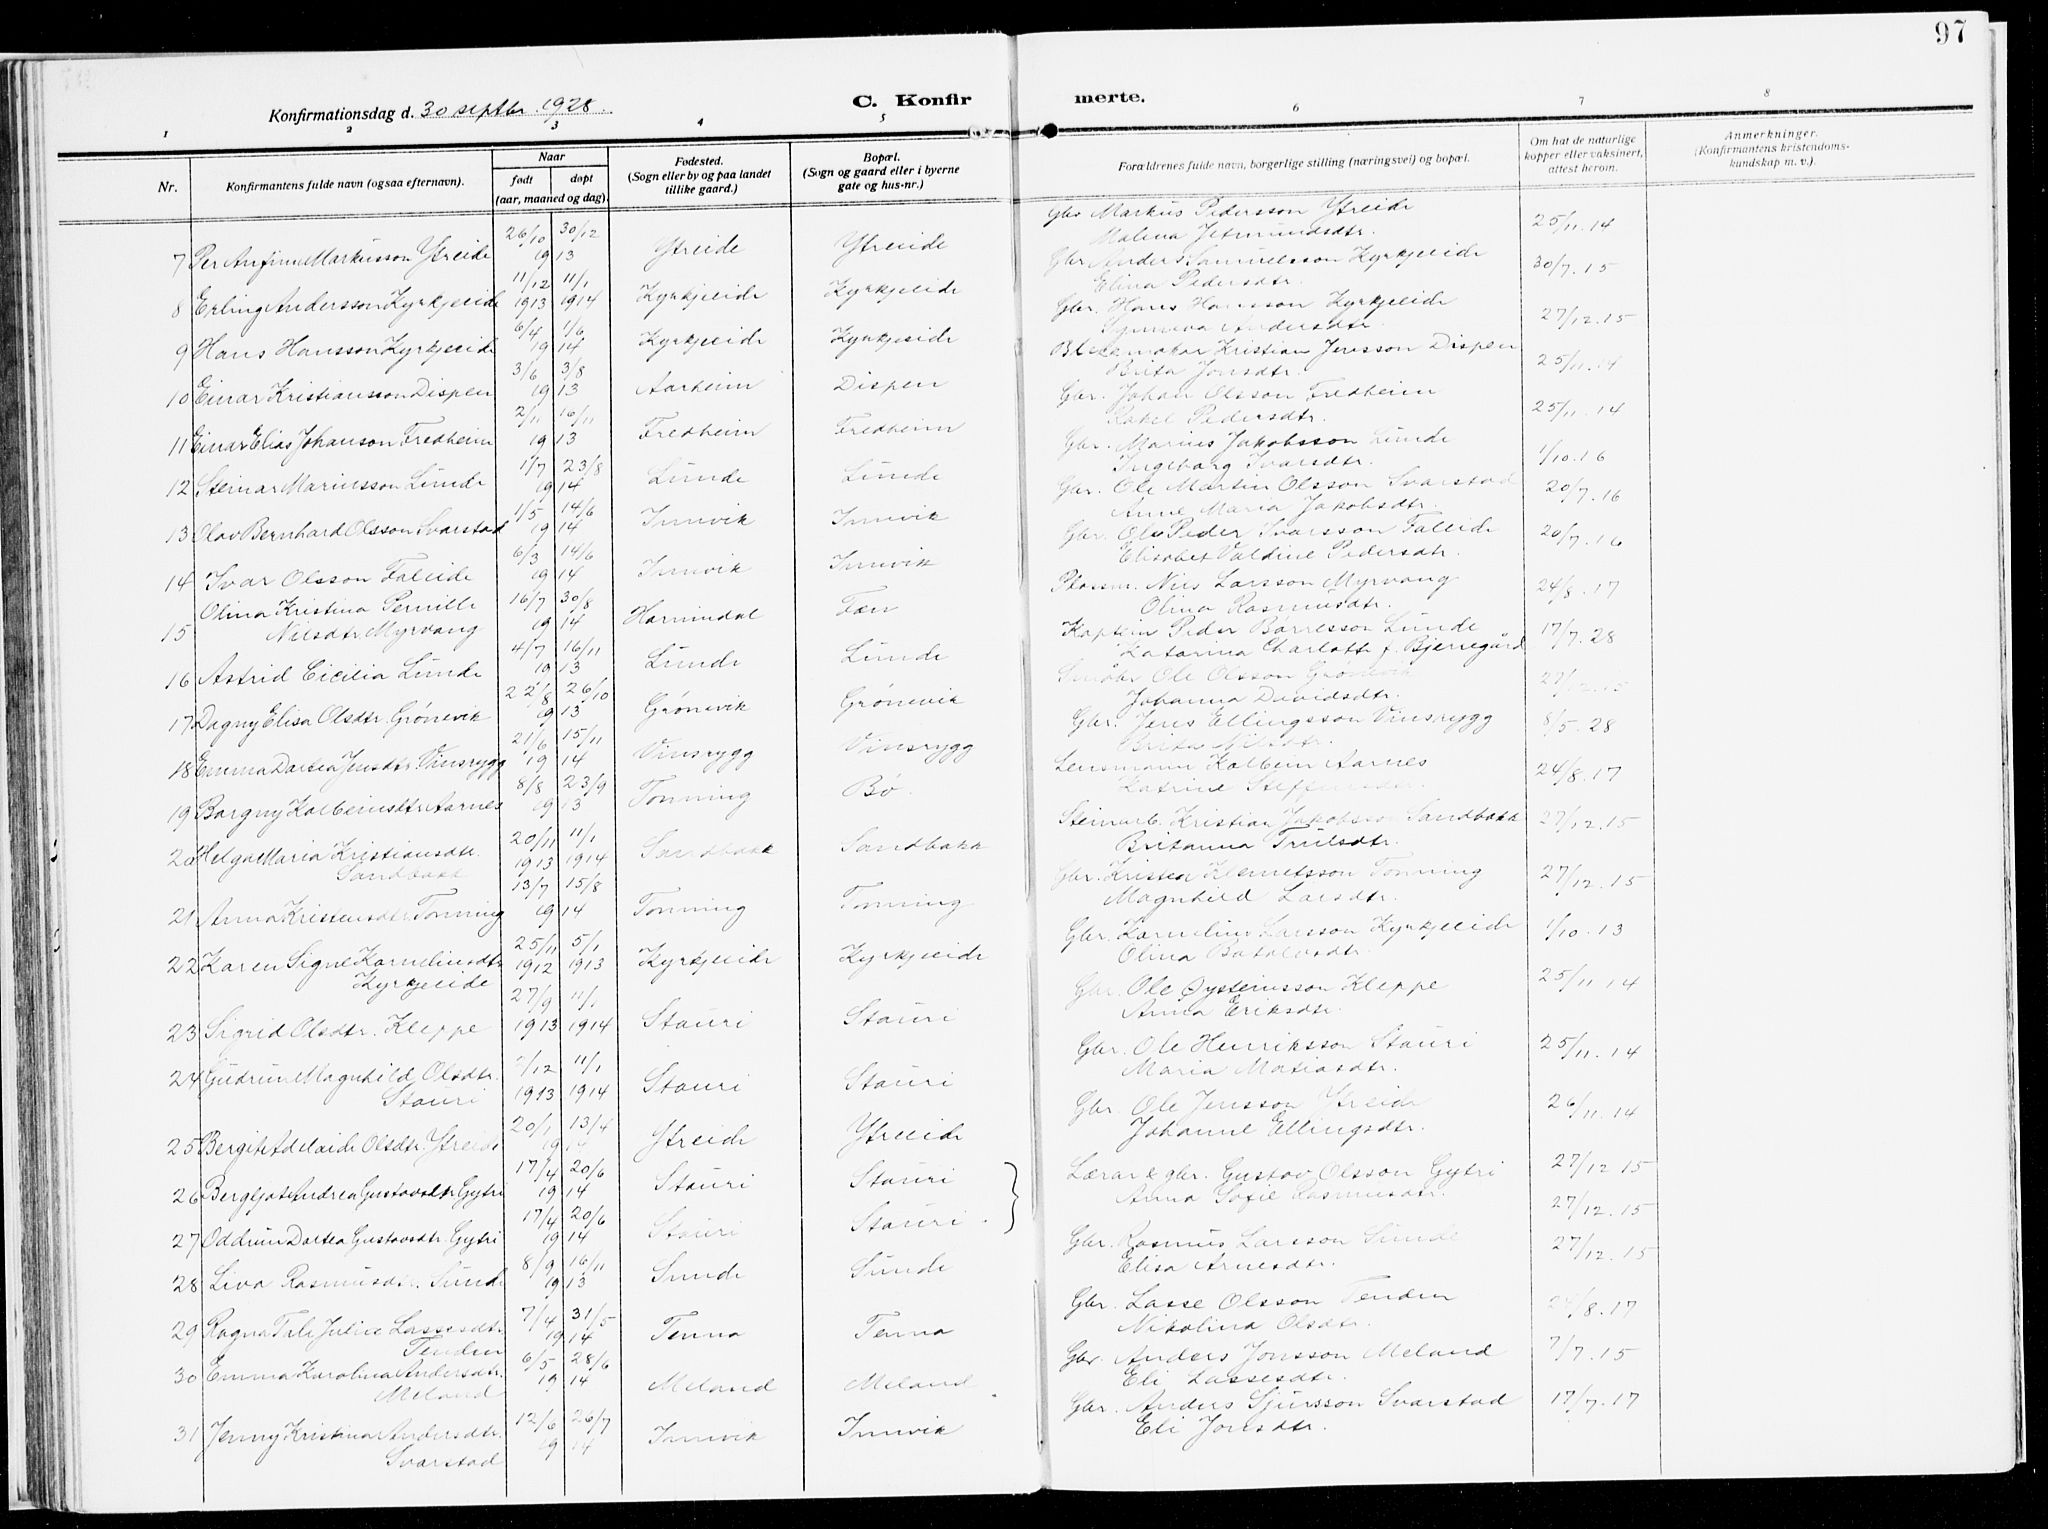 97
Konfirmationsdag d. 30 septbr. 1928.
C. Konfir
merte.
1 2 3 4 5 6 7 8
Nr.
Konfirmantens fulde navn (ogsaa efternavn).
Naar
født døpt
(aar, maaned og dag).
Fødested.
(Sogn eller by og paa landet
tillike gaard.)
Bopæl.
(Sogn og gaard eller i byerne
gate og hus-nr.)
Forældrenes fulde navn, borgerlige stilling (næringsvei) og bopæl.
Om hat de naturlige
kopper eller vaksinert,
attest herom.
Anmerkninger.
(Konfirmantens kristendoms-
kundskap m. v.)
7 Per Anfinn Markusson Ytreide 26/10 30/12 1913 Ytreide Ytreeide Gbr. Markus Pedersson Ytreide 25/11.14
Malena Jetmundsdtr.
8 Erling Andersson Kyrkjeeide 11/12 1913 11/1 1914 Kyrkjeeide Kyrkjeeide Gbr. Anders Samuelsson Kyrkjeeide 30/7.15
Elina Pedersdtr.
9 Hans Hansson Kyrkjeeide 6/4 1/6 1914 Kyrkjeeide Kyrkjeeide Gbr. Hans Hansson Kyrkjeide 27/12.15
Synneva Andersdtr.
10 Einar Kristiansson Dispen 3/6 3/8 1913 Aarheim Dispen Blekkmakar Kristian Jensson Dispen 25/11.14
Brita Jonsdtr.
11 Einar Elias Johanson Fredheim 2/11 16/11 1913 Fredheim Fredheim Gbr. Johan Olsson Fredheim 25/11.14
Rakel Pedersdtr.
12 Steinar Mariusson Lunde 1/7 23/8 1914 Lunde Lunde Gbr. Marius Jakobsson Lunde 1/10.16
Ingeborg Ivarsdtr.
13 Olav Bernhard Olsson Svarstad 1/5 14/6 1914 Innvik Innvik Gbr. Ole Martin Olsson Svarstad 20/7.16
Anne Maria Jakobsdtr.
14 Ivar Olsson Faleide 6/3 14/6 1914 Innvik Innvik Gbr. Ole Peder Ivarsson Faleide 20/7.16
Elisabet Valdine Pedersdtr.
15 Olina Kristina Pernille 16/7 30/8 1914 Hornindal Plassm. Nils Larsson Myrvang 24/8.17
Nilsdtr. Myrvang Olina Rasmusdtr.
16 Astrid Cicilia Lunde 4/7 16/11 1913 Lunde Lunde Kaptein Peder Børresson Lunde 17/7.28
Katarina Charlotte f. Bjerregård
17 Dagny Elisa Olsdtr. Grønevik 22/8 26/10 1913 Grønevik Grønevik Småbr. Ole Olsson Grønevik 27/12.15
Johanna Davidsdtr.
18 Emma Dortea Jensdtr. Vinsrygg 21/6 15/11 1914 Vinsrygg Vinsrygg Gbr. Jens Ellingsson Vinsrygg 8/5.28
Brita Nilsdtr.
19 Borgny Kolbeinsdtr. Aarnes 8/8 23/9 1913 Tonning Bø. Lensmann Kolbein Aarnes 24/8.17
Katrine Steffensdtr.
20 Helga Maria Kristiansdtr. 20/11 1913 11/1 1914 Sandbakk Sandbakk Steinarb. Kristian Jakobsson Sandbakk 27/12.15
Sandbakk Britanna Trulsdtr.
21 Anna Kristensdtr. Tonning 13/7 15/8 1914 Tonning Tonning Gbr. Kristen Klemetsson Tonning 27/12.15
Magnhild Larsdtr.
22 Karen Signe Korneliusdtr. 25/11 1912 5/1 1913 Kyrkjeeide Kyrkjeeide Gbr. Kornelius Larsson Kyrkjeeide 1/10.13
Kyrkjeeide Olina Botolvsdtr.
23 Sigrid Olsdtr. Kleppe 27/9 1913 11/1 1914 Stauri Stauri Gbr. Ole Øysteinsson Kleppe 25/11.14
Anna Eriksdtr.
24 Gudrun Magnhild Olsdtr. /12 1913 11/1 1914 Stauri Stauri Gbr. Ole Henriksson Stauri 25/11.14
Stauri Maria Matiasdtr.
25 Bergit Adelaide Olsdtr. Ytreide 20/1 13/4 1914 Ytreide Ytreeide Gbr. Ole Jensson Ytreide 26/11.14
Johanne Ellingsdtr.
26 Bergljot Andrea Gustavsdtr Gytri 17/4 20/6 1914 Stauri Stauri Lærar & gbr. Gustav Olsson Gytri 27/12.15
Anna Sofie Rasmusdtr.
27 Oddrun Dortea Gustavsdtr. Gytri 17/4 20/6 1914 Stauri Stauri. 27/12.15
28 Liva Rasmusdtr. Sunde 8/9 16/11 1913 Sunde Sunde Gbr. Rasmus Larsson Sunde 27/12.15
Elisa Arnesdtr.
29 Ragna Tali Julie Lassesdtr. 7/4 31/5 1914 Tenna Tenna Gbr. Lasse Olsson Tenden 24/8.17
Tenden Nikolina Olsdtr.
30 Emma Karolina Andersdtr. 6/5 28/6 1914 Meland Meland Gbr. Anders Jonsson Meland 7/7.15
Meland Eli Lassesdtr.
31 Jenny Kristina Andersdtr. 12/6 26/7 1914 Innvik Innvik Gbr. Anders Sjursson Svarstad 17/7.17
Svarstad Eli Jonsdtr.